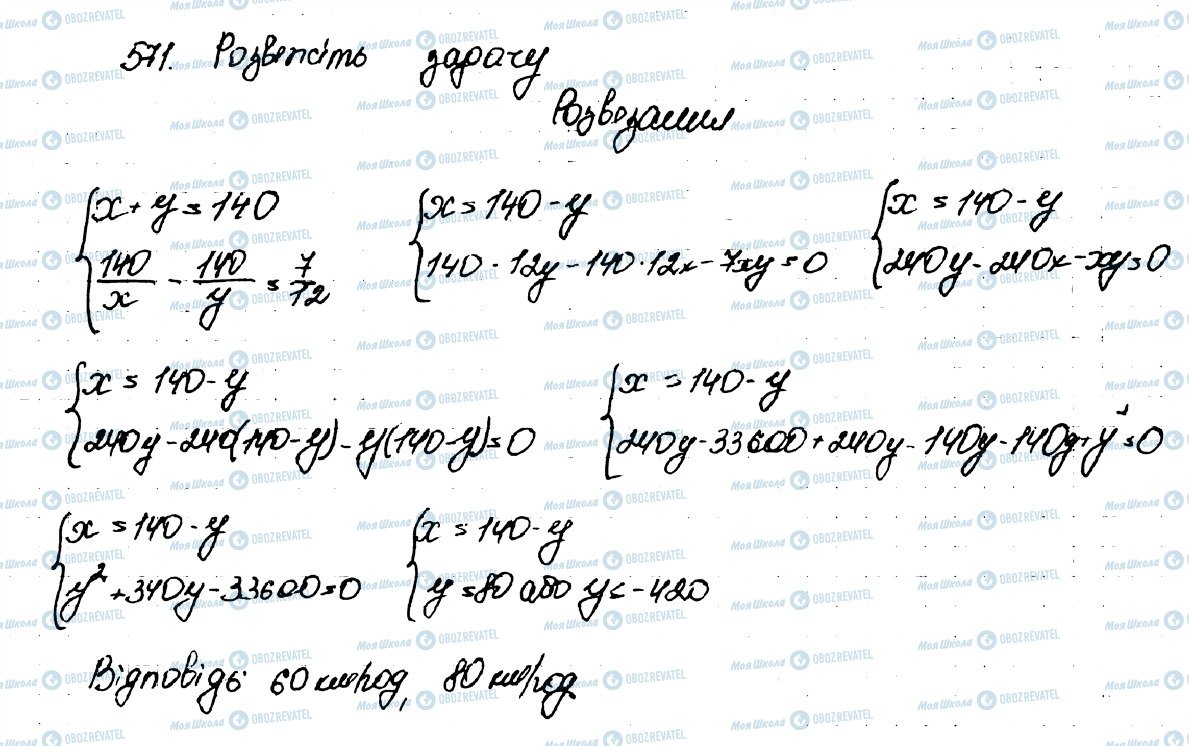 571. Розвʼязіть задачу
Розвʼязання
{ x + y = 140
140/x - 140/y = 7/12
{ x = 140 - y
140 · 12y - 140 · 12x - 7xy = 0
{ x = 140 - y
240y - 240x - xy = 0
{ x = 140 - y
240y - 240(140 - y) - y(140 - y) = 0
{ x = 140 - y
240y - 33600 + 240y - 140y - 140y + y² = 0
{ x = 140 - y
y² + 340y - 33600 = 0
{ x = 140 - y
y = 80 або y = -420
Відповідь: 60 км/год, 80 км/год